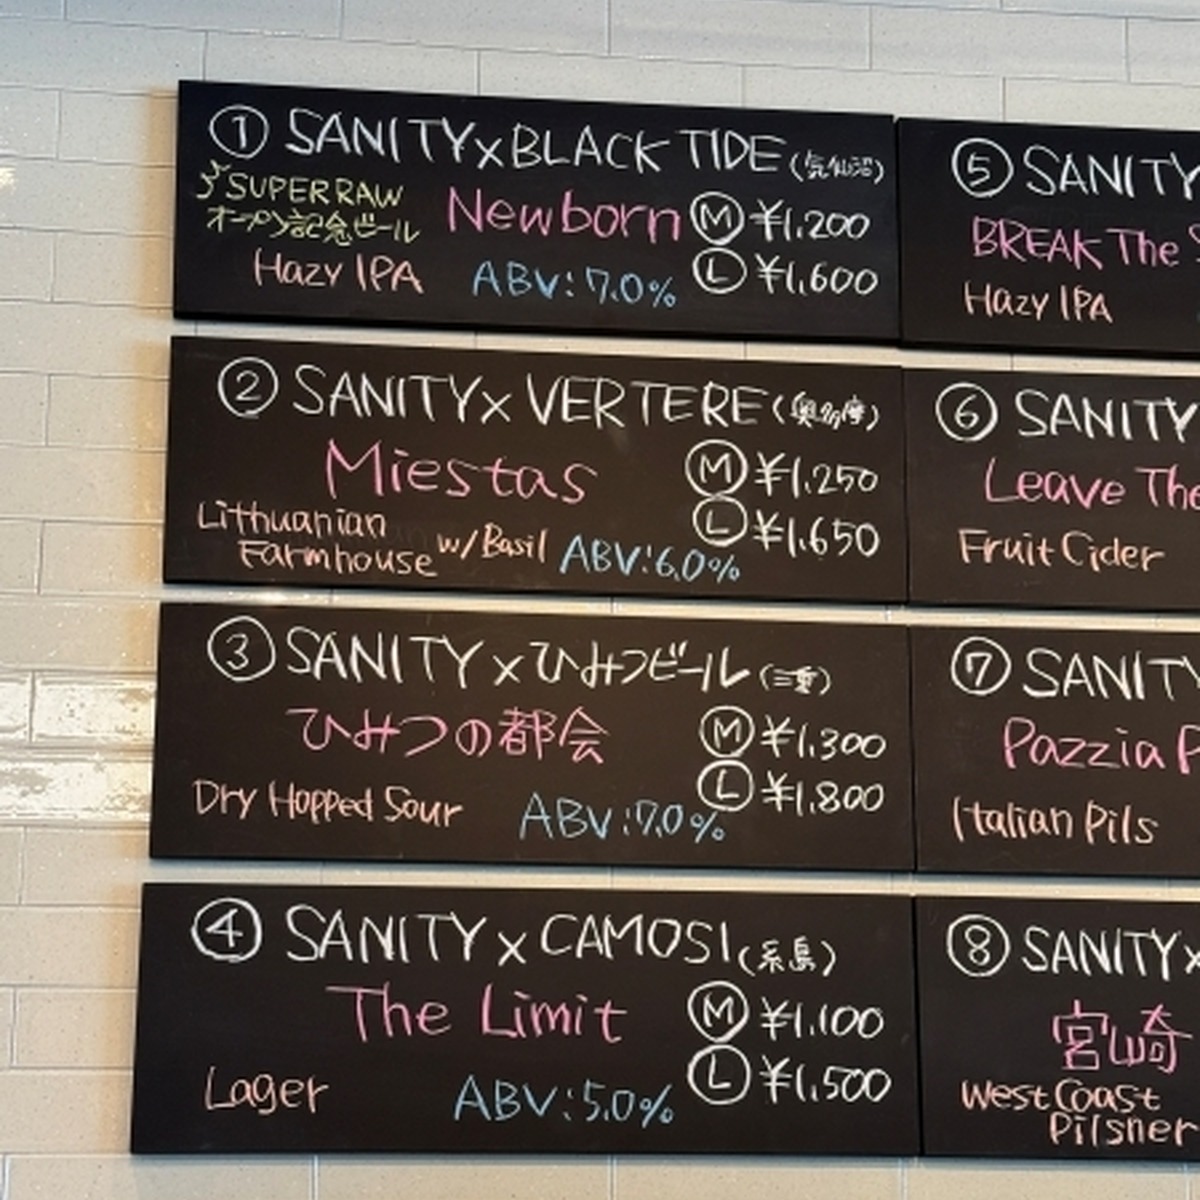 ① SANITY x BLACK TIDE (気仙沼)
SUPER RAW
オープン記念ビール
Newborn
Ⓜ ¥1,200
Hazy IPA
ABV:7.0%
Ⓛ ¥1,600
② SANITY x VERTERE (奥多摩)
Miestas
Ⓜ ¥1,250
Lithuanian
Farmhouse w/Basil
ABV:6.0%
Ⓛ ¥1,650
③ SANITY x ひみつビール (三重)
ひみつの都会
Ⓜ ¥1,300
Dry Hopped Sour
ABV:7.0%
Ⓛ ¥1,800
④ SANITY x CAMOSI (糸島)
The Limit
Ⓜ ¥1,100
Lager
ABV:5.0%
Ⓛ ¥1,500
⑤ SANITY
BREAK The
Hazy IPA
⑥ SANITY
Leave The
Fruit Cider
⑦ SANITY
Pazzia
Italian Pils
⑧ SANITY x
宮崎
West Coast
Pilsner